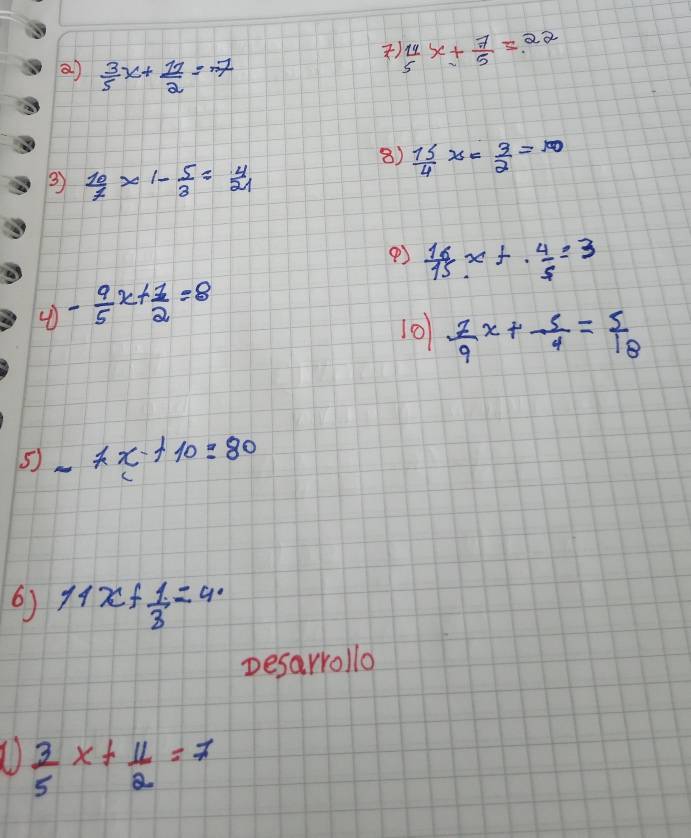 2) 3/5 x + 11/2 = -7
3) 10/7 x - 5/3 = 4/21
4) - 9/5 x + 7/2 = 8
5) - 7x + 10 = 80
6) 11x + 1/3 = 4.
7) 11/5 x + 7/5 = 22
8) 15/4 x = 3/2 =
9) 16/15 x + 4/5 = 3
10) 7/9 x + 5/4 = 5/18
Desarrollo
1) 3/5 x + 11/2 = 7